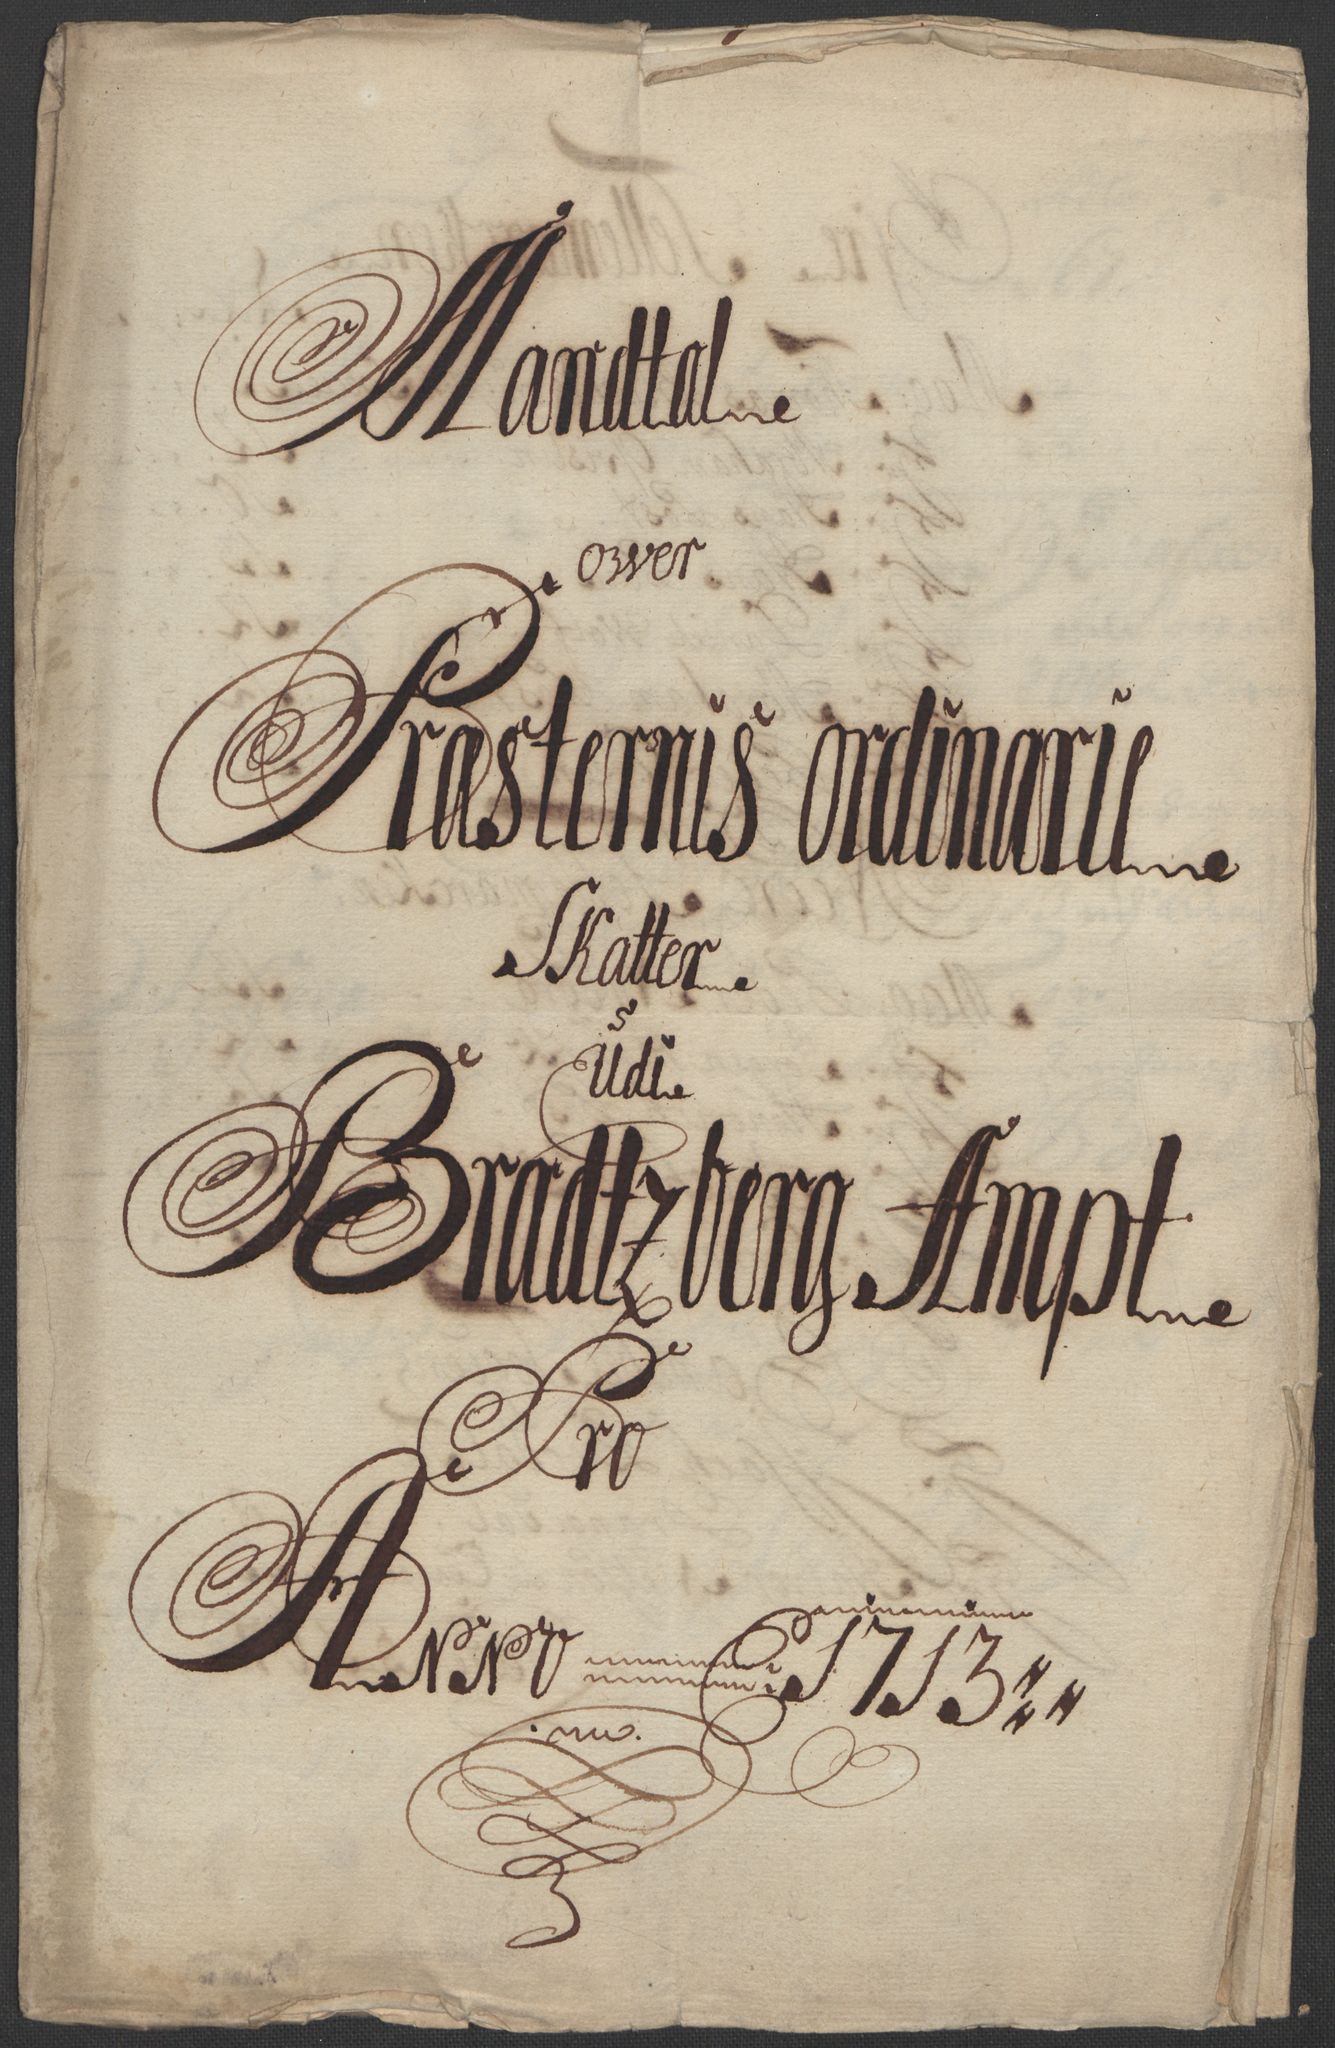 Mandtal
over
Præsternis ordinarie
Skatter
Udi
Bradtzberg Ampt
Pro
Anno 1713